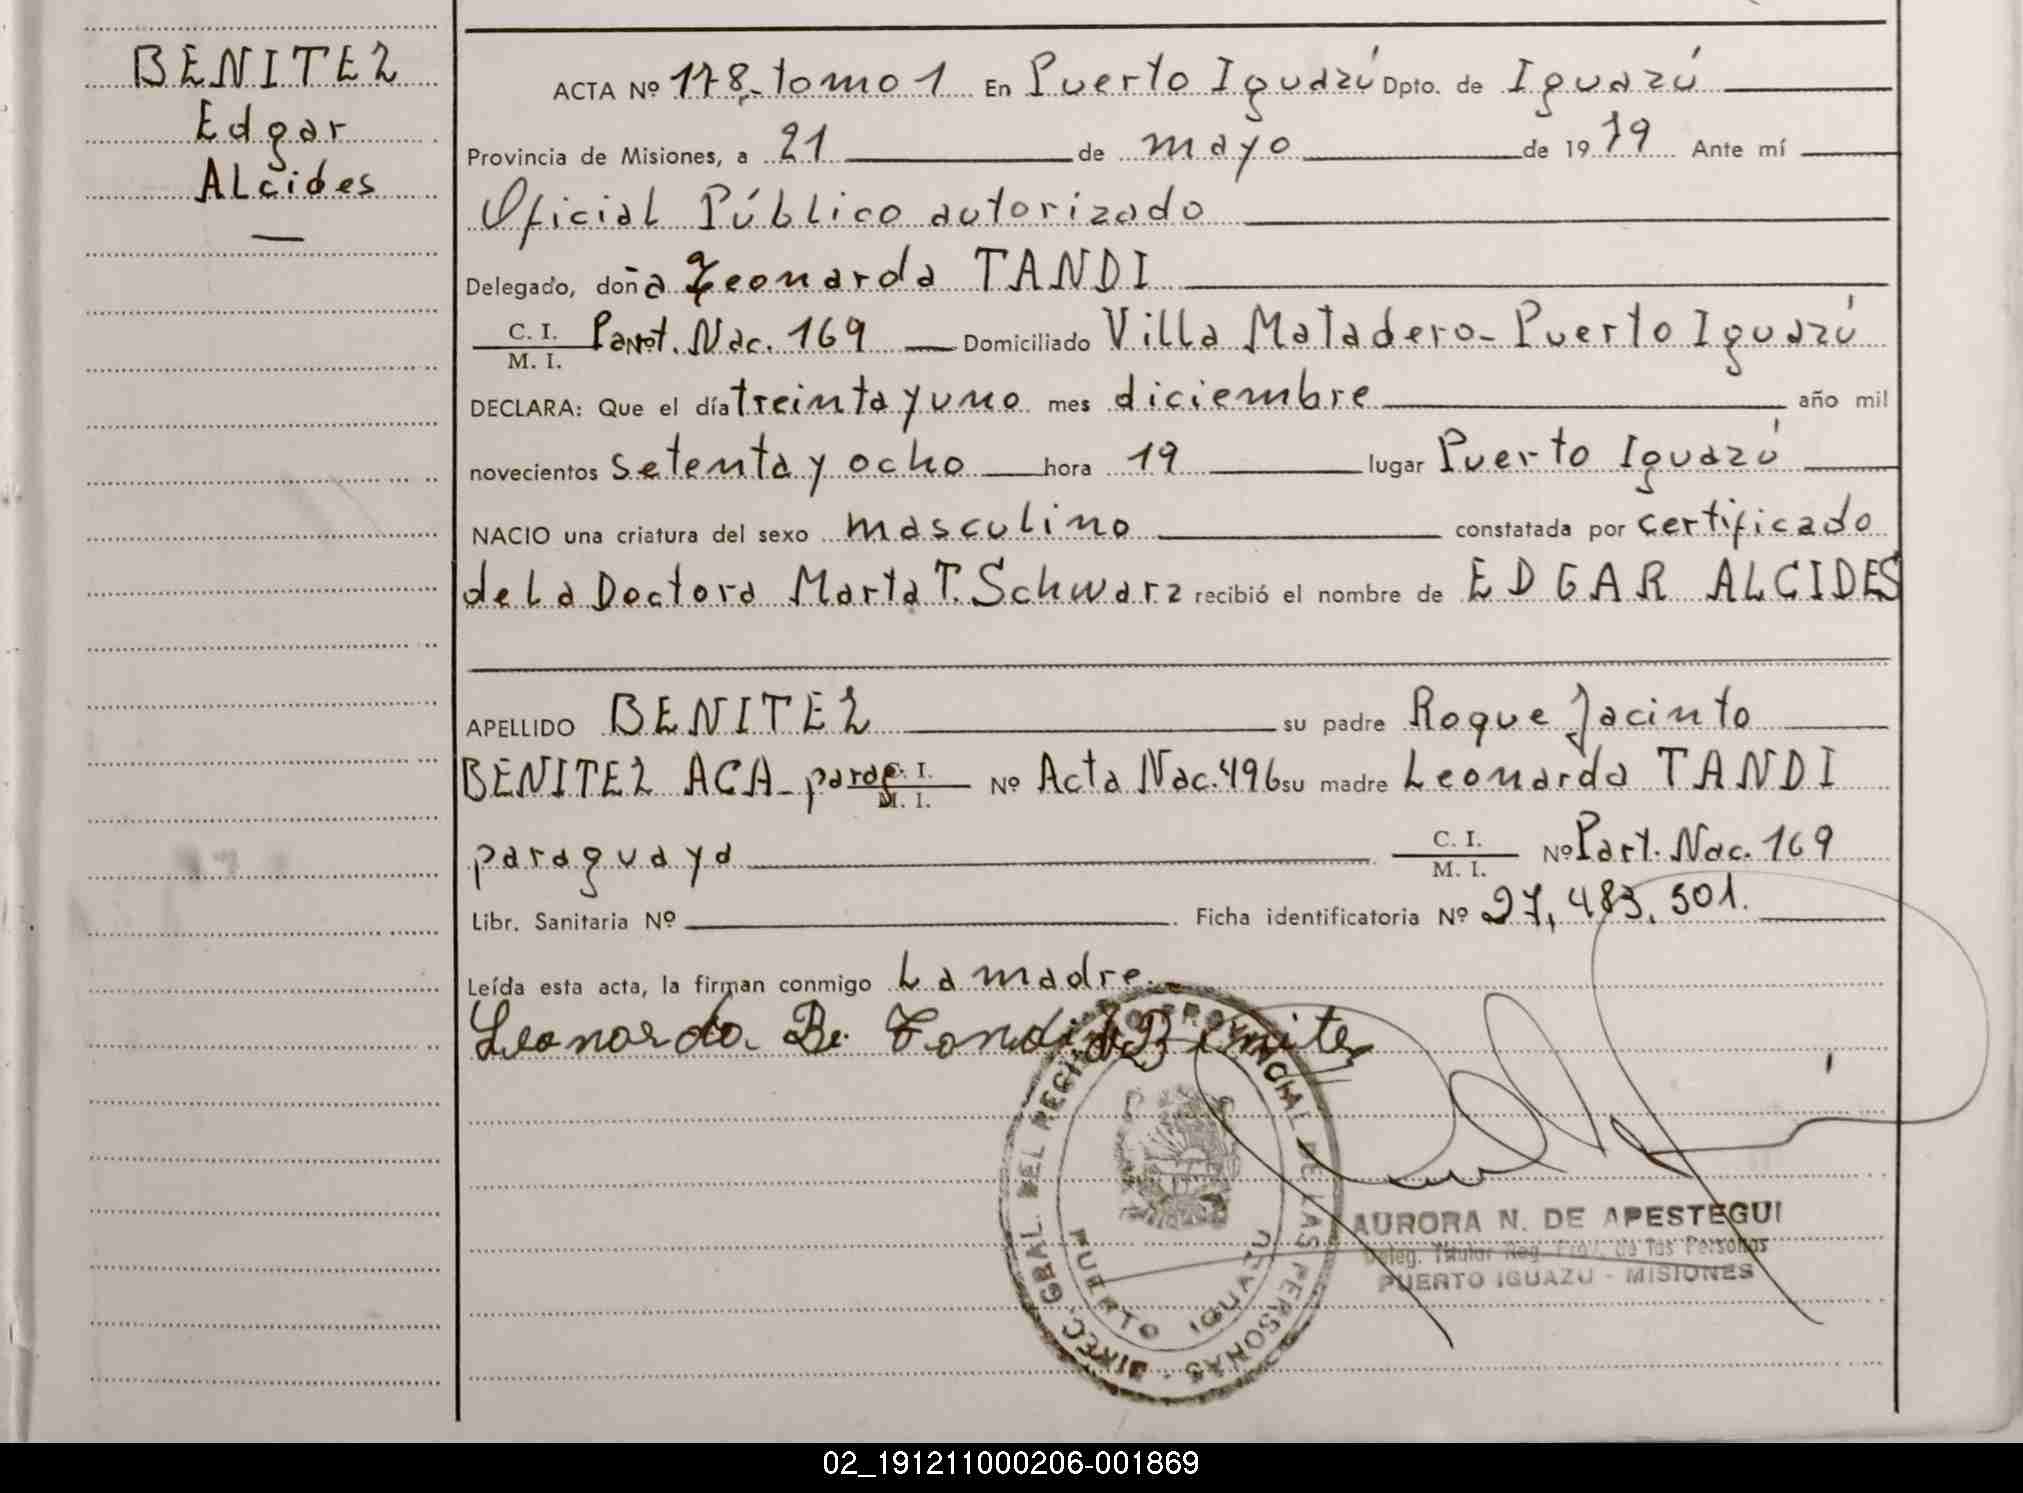 BENITEZ
Edgar
ALcides
ACTA Nº 178_ tomo 1 En Puerto Iguazú Dpto. de Iguazú
Provincia de Misiones, a 21 de mayo de 1979 Ante mí
Oficial Público autorizado
Delegado, doña Leonarda TANDI
C. I.
M. I.
Part. Nac. 169 Domiciliado Villa Matadero- Puerto Iguazú
DECLARA: Que el día treinta y uno mes diciembre año mil
novecientos setenta y ocho hora 19 lugar Puerto Iguazú
NACIO una criatura del sexo masculino constatada por certificado
de la Doctora Marta T. Schwarz recibió el nombre de EDGAR ALCIDES
APELLIDO BENITEZ su padre Roque Jacinto
BENITEZ ACA_ parag. C. I. M. I. Nº Acta Nac. 496 su madre Leonarda TANDI
paraguaya C. I. M. I. Nº Part. Nac. 169
Libr. Sanitaria Nº . Ficha identificatoria Nº 27,483,501.
Leída esta acta, la firman conmigo La madre.
Leonarda B. Tandi de Benitez
DIREC. GRAL. DEL REGISTRO PROVINCIAL DE LAS PERSONAS
PUERTO IGUAZU
AURORA N. DE APESTEGUI
Deleg. Titular Reg. Prov. de las Personas
PUERTO IGUAZU - MISIONES
02_191211000206-001869